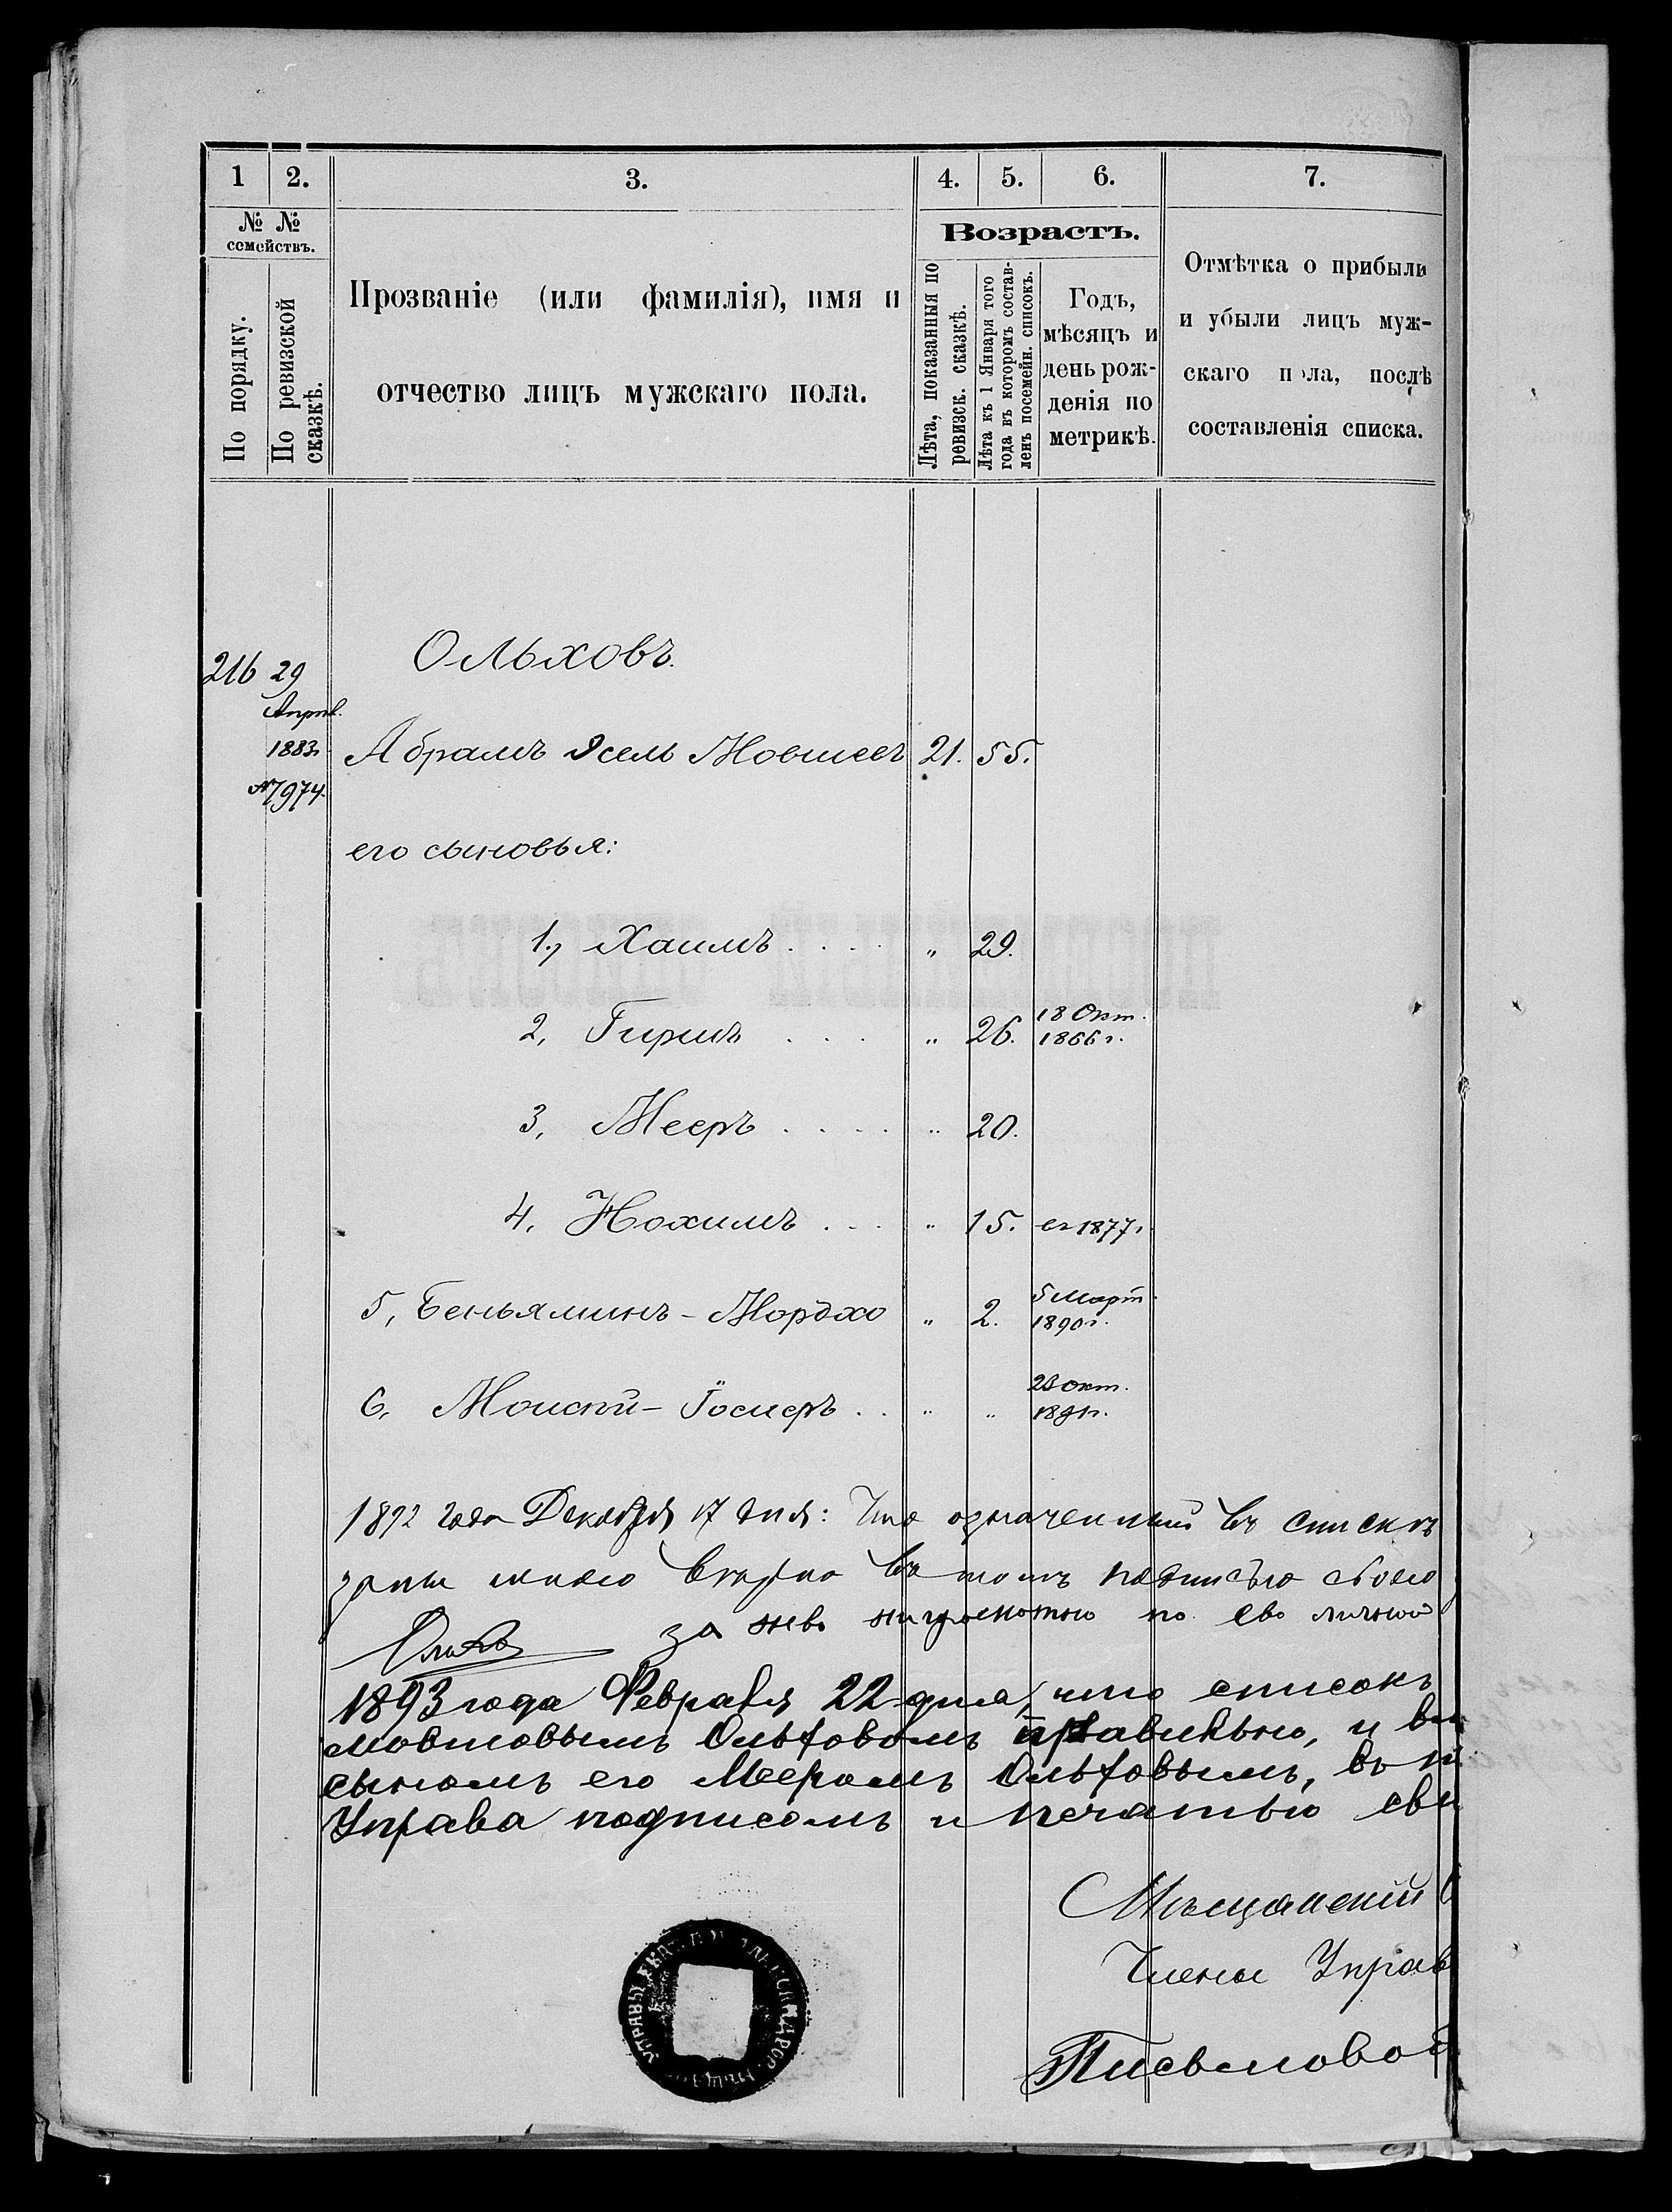 1 2. 3. 4. 5. 6. 7.
№ №
семействъ.
По порядку.
По ревизской
сказкѣ.
Прозваніе (или фамилія), имя и
отчество лицъ мужскаго пола.
Возрастъ.
Лѣта, показанныя по
ревизск. сказкѣ.
Лѣта къ 1 Января того
года въ которомъ состав-
ленъ посемейн. списокъ.
Годъ,
мѣсяцъ и
день рож-
денія по
метрикѣ.
Отмѣтка о прибыли
и убыли лицъ муж-
скаго пола, послѣ
составленія списка.
216 29 Ольховъ.
Апрѣл.
1883г. Абрамъ Осель Мовшеевъ 21. 55.
№7974.
его сыновья:
1., Хаимъ . . . . „ 29.
2, Гиршъ . . . „ 26. 18 Окт.
1866 г.
3, Мееръ . . . . „ 20.
4, Нохимъ . . . „ 15. 1877г.
5, Беньяминъ - Мордхо „ 2. 5 Март.
1890г.
6, - Іосиеръ . . „ „ окт.
1891г.
1892 года Декабря 17 дня: Что означенный въ спискѣ
мною вѣрно въ томъ подписью свою
за нево по ево личной
1893 года Февраля 22 дня, что списокъ
Ольховомъ правильно, и
сыномъ его Мееромъ Ольховымъ,
Управа подписомъ и печатью
Мѣщанскій
Члены Управ
Письмовод
УПРАВЫ